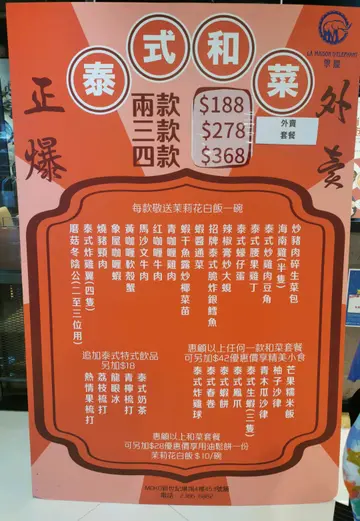 LA MAISON D'ELEPHANT
象館
泰式和菜
正爆
外賣
兩款 $188
三款 $278
四款 $368
外賣
套餐
每款敬送茉莉花白飯一碗
炒豬肉碎生菜包
海南雞(半隻)
泰式炒雞肉豆角
泰式腰果雞丁
泰式蠔仔蛋
辣椒膏炒大蜆
招牌泰式脆炸銀鱈魚
蝦醬通菜
蝦干魚露炒椰菜苗
青咖喱雞肉
紅咖喱牛肉
馬沙文牛肉
黃咖喱軟殼蟹
象屋咖喱蝦
燒豬頸肉
泰式炸雞翼(四隻)
蘑菇冬陰公(二至三位用)
追加泰式特式飲品
另加$18
泰式奶茶
青檸梳打
龍眼冰
荔枝梳打
熱情果梳打
惠顧以上任何一款和菜套餐
可另加$42優惠價享精美小食
芒果糯米飯
柚子沙律
青木瓜沙律
泰式生蝦(三隻)
泰式鳳爪
泰式蝦餅
泰式春卷
泰式炸雞球
惠顧以上和菜套餐
可另加$28優惠價享用油鬆餅一份
茉莉花白飯$10/碗